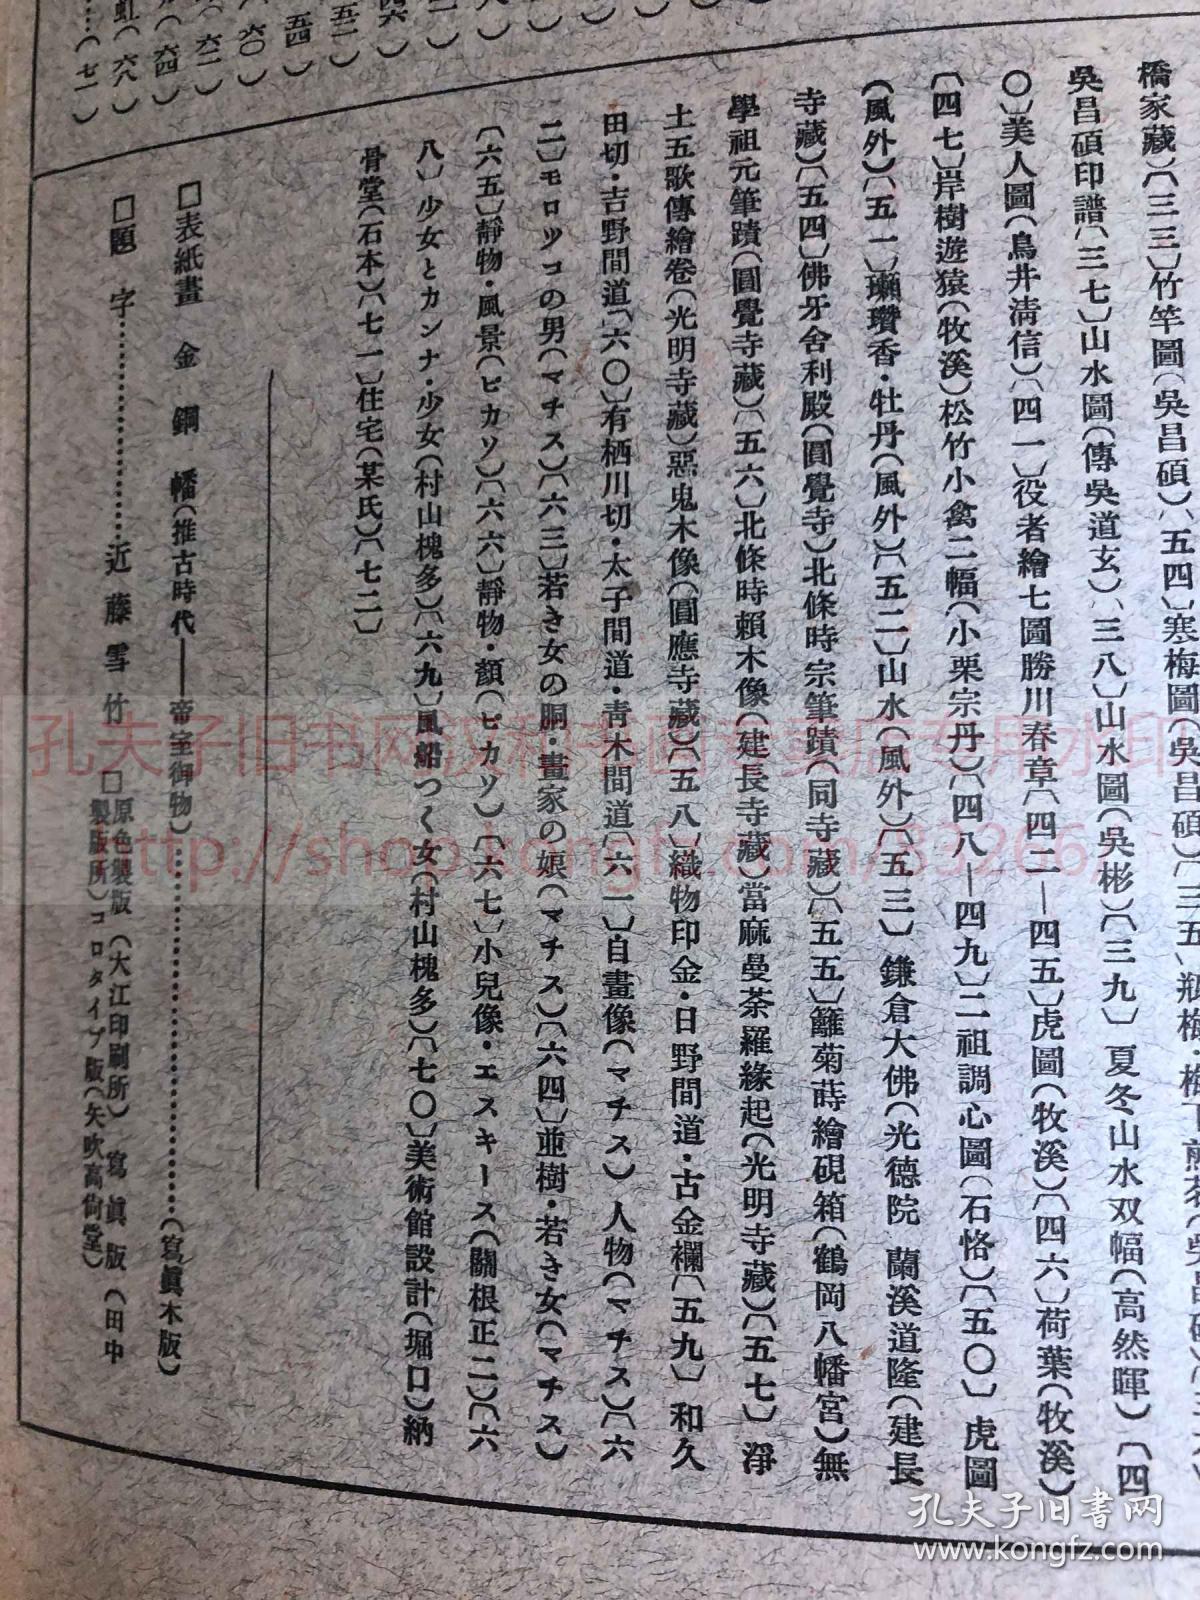 橋家藏)〔三三〕竹竿圖(吳昌碩)〔五四〕寒梅圖(吳昌碩)〔三五〕瓶梅・梅下煎茶(吳昌碩)
吳昌碩印譜〔三七〕山水圖(傳吳道玄)〔三八〕山水圖(吳彬)〔三九〕夏冬山水双幅(高然暉)〔四
〇〕美人圖(鳥井淸信)〔四一〕役者繪七圖勝川春章〔四二—四五〕虎圖(牧溪)〔四六〕荷葉(牧溪)
〔四七〕岸樹遊猿(牧溪)松竹小禽二幅(小栗宗丹)〔四八—四九〕二祖調心圖(石恪)〔五〇〕虎圖
(風外)〔五一〕瓚香・牡丹(風外)〔五二〕山水(風外)〔五三〕鎌倉大佛(光德院 蘭溪道隆(建長
寺藏)〔五四〕佛牙舍利殿(圓覺寺)北條時宗筆蹟(同寺藏)〔五五〕籬菊蒔繪硯箱(鶴岡八幡宮)無
學祖元筆蹟(圓覺寺藏)〔五六〕北條時賴木像(建長寺藏)當麻曼荼羅緣起(光明寺藏)〔五七〕淨
土五歌傳繪卷(光明寺藏)惡鬼木像(圓應寺藏)〔五八〕織物印金・日野間道・古金襴〔五九〕和久
田切・吉野間道〔六〇〕有栖川切・太子間道・靑木間道〔六一〕自畫像(マチス)人物(マチス)〔六
二〕モロッコの男(マチス)〔六三〕若き女の胴・畫家の娘(マチス)〔六四〕並樹・若き女(マチス)
〔六五〕靜物・風景(ピカソ)〔六六〕靜物・顏(ピカソ)〔六七〕小兒像・エスキース(關根正二)〔六
八〕少女とカンナ・少女(村山槐多)〔六九〕風船つく女(村山槐多)〔七〇〕美術館設計(堀口)納
骨堂(石本)〔七一〕住宅(某氏)〔七二〕
□表紙畫 金銅幡(推古時代——帝室御物)……………(寫眞木版)
□題 字……………近藤雪竹 □原色製版(大江印刷所)寫眞版(田中
製版所)コロタイプ版(矢吹高尙堂)
孔夫子旧书网
www.kongfz.com